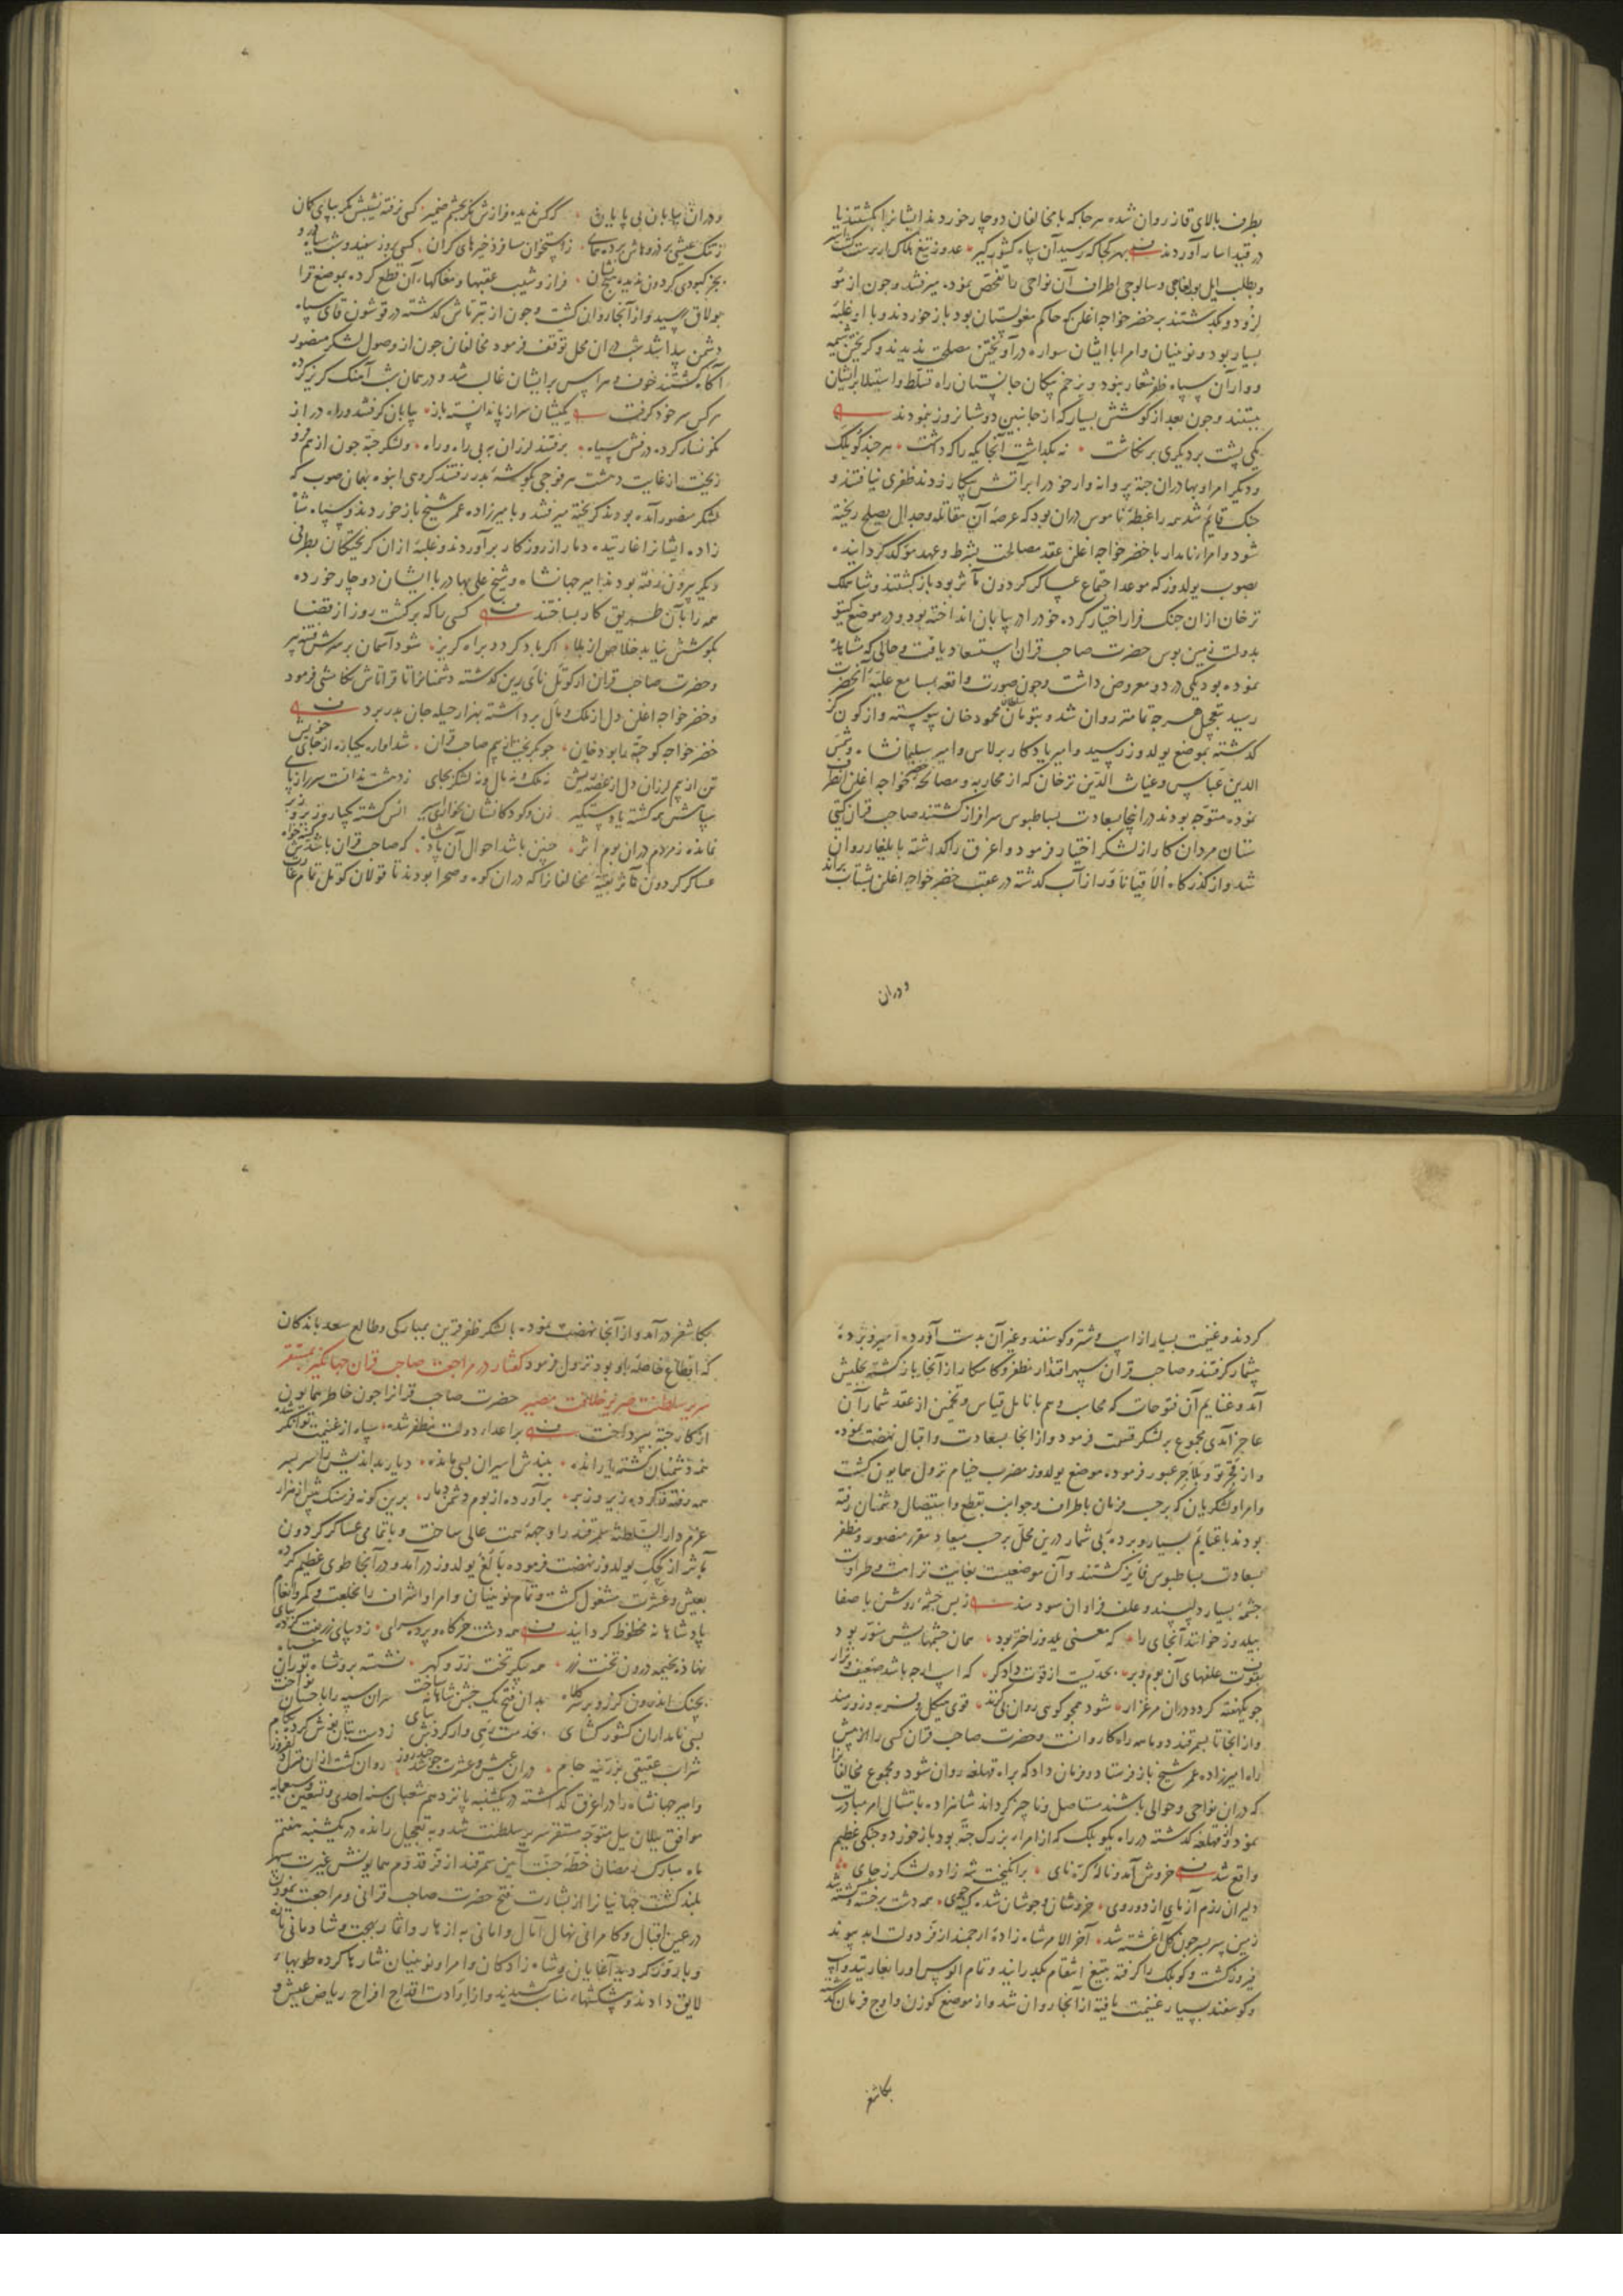 بطرف بالای قاز روان شده هرجا که با مخالفان دوچار خوردند ایشانرا بکشتند یا
در قید اسار آوردند بهر کجا که رسید آن سپاه کشورگیر عدو ز تیغ هلاک
و بطلب ایل بولغاجی و سالوجی اطراف آن نواحی را تفحص نموده میرفتند و چون از
و بکذشتند بر خضر خواجه اغلن که حاکم مغولستان بود باز خوردند و با او غلبهٔ
بسیار بود و نوئینان و امرا با ایشان سواره درآویختن مصلحت ندیدند و کریختن
آن سپاه ظفر شعار نبود و بزخم پیکان جانستان راه تسلط و استیلا بر ایشان
ببستند و چون بعد از کوشش بسیار که از جانبین دو شبانروز نمودند
یکی پشت بر دیگری بر نکاشت نه بکذاشت آنجایکه را که داشت هرچند کوبلک
و دیگر امرا و بهادران جته پروانه وار خود را بر آتش پیکار زدند ظفری نیافتند و
جنک قایم شد همه را غبطهٔ ناموس دران بود که عرصهٔ آن مقاتله و جدال بصلح ریخته
شود و امراء نامدار با خضر خواجه اغلن عقد مصالحت بشرط و عهد موکد کردانیده
بصوب یولدوز که موعد اجتماع عساکر کردون مآثر بود بازکشتند و شاه ملک
ترخان ازان جنک فرار اختیار کرده خود را در بیابان انداخته بود و در موضع کیتو
بدولت زمین بوس حضرت صاحب قران استسعاد یافت و حالی که مشاهده
نموده بود یکی در ده معروض داشت و چون صورت واقعه بمسامع علیهٔ آنحضرت
رسید بتعجیل هرچه تمامتر روان شد و بتومان سلطان محمود خان پیوسته و از کوبن
کذشته بموضع یولدوز رسید و امیر یادکار برلاس و امیر سلیمانشاه و شمس
الدین عباس و غیاث الدین ترخان که از محاربه و مصالحه خضر خواجه اغلن
نموده متوجه بودند در آنجا بسعادت بساط بوس سرافراز کشتند صاحب قران کیتی
ستان مردان کار از لشکر اختیار فرمود و اغرق را کذاشته بایلغار روان
شد و از کذرکاه از آب کذشته در عقب خضر خواجه اغلن بشتاب براند
ودران
ودران بیابان بی پایان که کس ندیده فرازش مکر بچشم ضمیر کسی نرفته نشیبش مکر بپای کمان
بجز کبودی کردون ندیده هیچ نشان فراز و شیب عقبها و مغاکهاء آن قطع کرده بموضع قرا
بولاق رسید و از آنجا روان کشت و چون از تبرتاش کذشته در قوشون قای سپاه
دشمن پیدا شد شب دران محل توقف فرمود مخالفان چون از وصول لشکر منصور
آکاه کشتند خوف و هراس بر ایشان غالب شد و در همان شب آهنک کریز کرده
هرکس سر خود کرفت یکیشان سر از پا ندانسته باز بیابان کرفتند و راه دراز
نکونسار کرده درفش سیاه برفتند لرزان به بی راه و راه و لشکر جته چون از هم
ریخت از غایت دهشت هر فوجی بکوشهٔ بدر رفتند کروهی انبوه بهمان صوب که
لشکر منصور آمده بودند کریخته میرفتند و با میرزاده عمر شیخ باز خوردند و سپاه شاه
زاده ایشانرا غارتیده دمار از روزکار برآوردند و غلبهٔ ازان کریختکان بطرفی
دیکر بیرون رفته بودند امیر جهانشاه و شیخ علی بهادر با ایشان دوچار خورده
همه را بآن طریق کار بساختند کسی را که برکشت روز از قضا
بکوشش نیابد خلاص از بلا اکر باد کردد براه کریز شود آسمان بر سرش فتنه
و حضرت صاحب قران از کوتل نای رین کذشته دشمنانرا تا قراتاش نکامشی فرمود
و خضر خواجه اغلن دل از ملک و مال برداشته بهزار حیله جان بدر برد
خضر خواجه کو جته را بود خان چو بکریخت از بیم صاحب قران شد آواره یکباره از جای خویش
تن از بیم لرزان دل از غصه ریش نه ملک و نه مال و نه لشکر بجای ز دهشت ندانست سر را ز پای
سپاهش همه کشته یا دستکیر زن و کودکانشان بخواری اسیر
نمانده ز مردم دران بوم اثر چنین باشد احوال آن پادشاه که صاحب قران باشدش
عساکر کردون مآثر بقیهٔ مخالفانرا که دران کوه و صحرا بودند تا قولان کوتل تمام غارت
کردند و غنیمت بسیار از اسپ و شتر و کوسفند و غیر آن بدست آورده اسیر و بردهٔ
بیشمار کرفتند و صاحب قران سپهر اقتدار مظفر و کامکار از آنجا بازکشته بجلیش
آمد و غنایم آن فتوحات که محاسب وهم با نامل قیاس و تخمین از عقد شمار آن
عاجز آمدی مجموع بر لشکر قسمت فرمود و از آنجا بسعادت و اقبال نهضت نموده
و از عبور فرموده موضع یولدوز مضرب خیام نزول همایون کشت
و امرا و لشکریان که برحسب فرمان باطراف و جوانب بقطع و استیصال دشمنان رفته
بودند با غنایم بسیار و بردهٔ بی شمار درین محل برحسب میعاد مقرر منصور و مظفر
بسعادت بساط بوس فایز کشتند و آن موضعیست بغایت نزاهت و طراوت
چشمهٔ بسیار دلپسند و علف فراوان سودمند ز بس چشمهٔ روشن با صفا
بیلدوز خوانند آنجای را که معنی یلدوز اختر بود همان چشمهایش منور بود
بقوت علفهای آن بوم و بر بحدیست از قوت دادکر که اسپ ار چه باشد ضعیف و نزار
چو یکهفته کردد دران مرغزار شود همچو کوهی روان قوی هیکل و فربه و زورمند
و از آنجا تا بسمرقند دو ماهه راه کاروانست و حضرت صاحب قران کس را از پیش
راه امیرزاده عمر شیخ باز فرستاد و فرمان داد که براه قهلغه روان شود و مجموع مخالفانرا
که دران نواحی و حوالی باشند مستاصل و ناچیز کرداند شاهزاده بامتثال امر مبادرت
نمود و از قهلغه کذشته در راه بکوبلک که از امراء بزرک جته بود باز خورد و جنکی عظیم
واقع شد خروش آمد و نالهٔ کره نای برانکیخت شه زاده لشکر ز جای
دلیران رزم آزمای از دو روی خروشان و جوشان شده کینه جوی همه دشت پر خسته و کشته شد
زمین سر بسر چون کل آغشته شد آخر الامر شاه زادهٔ ارجمند از فر دولت ابد پیوند
فیروز کشت و کوبلک را کرفته بتیغ انتقام بکذرانید و تمام الوس او را بغارتید و اسپ
و کوسفند بسیار غنیمت یافته از آنجا روان شد و از موضع کوزن و اوچ فرمان کذشته
بکاشغر
بکاشغر درآمد و از آنجا نهضت نموده با لشکر ظفر قرین بمبارکی و طالع سعد باندکان
که اقطاع خاصهٔ او بود نزول فرمود گفتار در مراجعت صاحب قران جهانگیر بمستقر
سریر سلطنت حضرت صاحب قرانرا چون خاطر همایون
از کار جته بپرداخت بر اعداء دولت مظفر شده سپاه از غنیمت توانکر شده
همه دشمنان کشته یا رانده ببندش اسیران بسی مانده دیار بداندیش را سر بسر
همه رفته و کرده زیر و زبر برآورده از بوم دشمن دمار برین کونه فرسنک بیش از هزار
عزم دار السلطنهٔ سمرقند را وجههٔ همت عالی ساخت و با تمامی عساکر کردون
مآثر از کچک یولدوز نهضت فرموده بالغ یولدوز درآمد و در آنجا طوی عظیم کرده
بعیش و عشرت مشغول کشت و تمام نوئینان و امرا و اشراف را بخلعت و کمر و انعام
پادشاهانه محظوظ کردانید همه دشت خرکاه و پرده سرای
نهاده بخیمه درون تخت زر همه پیکر تخت زر و کهر نشسته برو شاه توران
بجنک اندرون کرز و بر سر کلاه بدان فتح یک جشن شاهانه ساخت سران سپه را باحسان نواخت
بسی نامداران کشور کشای بخدمت
شراب عقیقی بزرینه جام دران عیش و عشرت چو شد چند روز روان کشت ازان منزل
و امیر جهانشاه را در اغرق کذاشته در یکشنبه پانزدهم شعبان سنه احدی و تسعین و سبعمایه
موافق ییلان ییل متوجه مستقر سریر سلطنت شد و به تعجیل رانده در یکشنبه هفتم
ماه مبارک رمضان خطهٔ جنت آیین سمرقند از فر قدوم همایونش غیرت سپهر
بلند کشت جهانیانرا از بشارت فتح حضرت صاحب قرانی و مراجعت نمودن
در عین اقبال و کامرانی نهال آمال و امانی به ازهار و اثمار بهجت و شادمانی
و بارور کردید آغایان و شاه زادکان و امرا و نوئینان نثارها کرده طویهاء
لایق دادند و پیشکشهاء مناسب کشیدند و از ادارت اقداح افراح ریاض عیش و